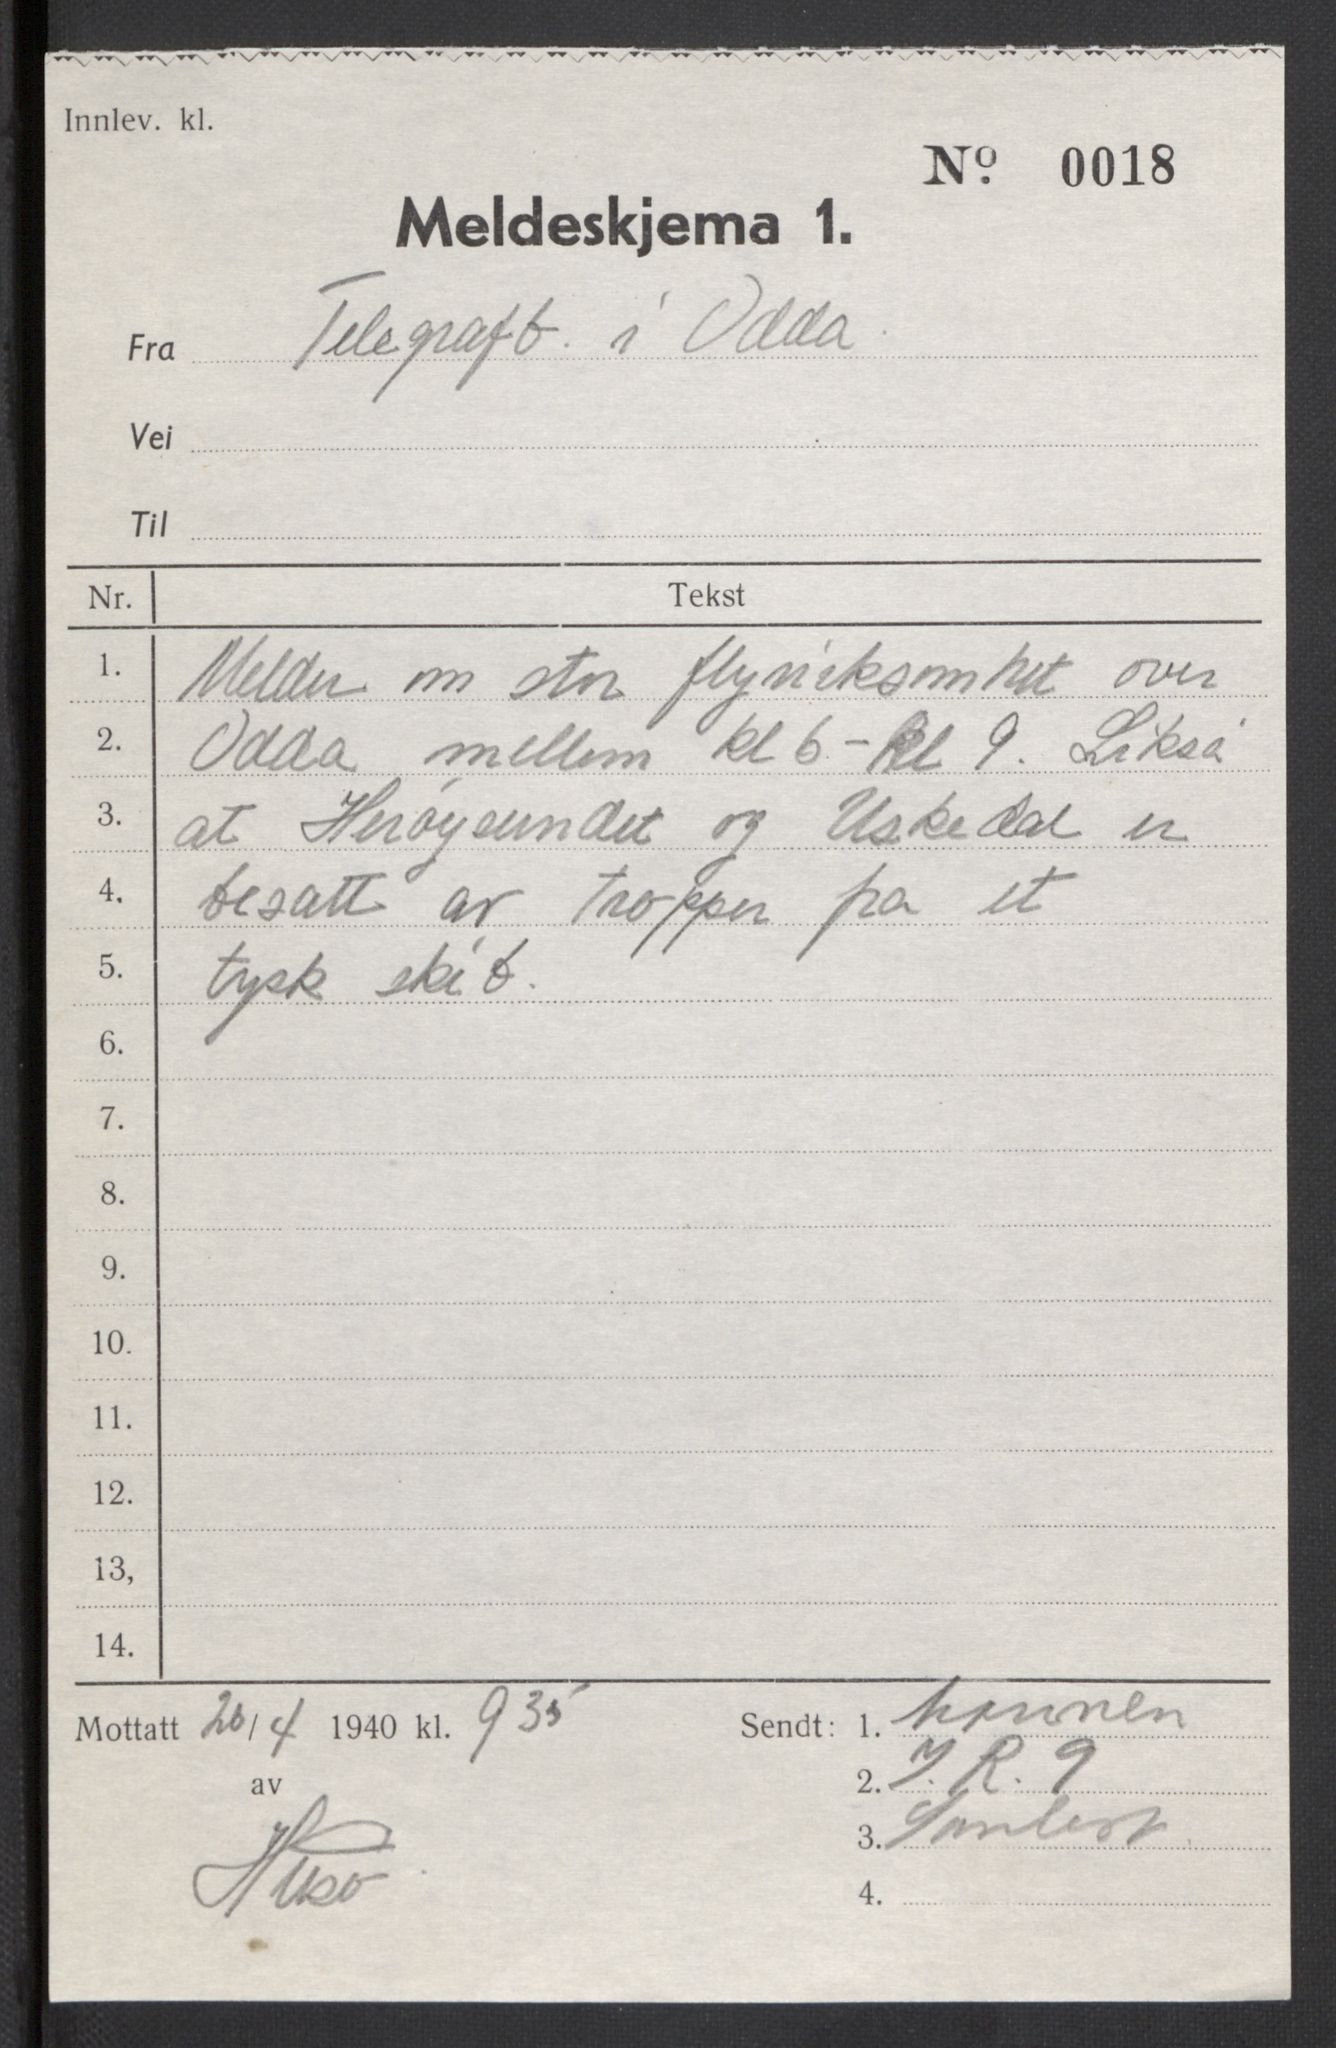 Innlev. kl.
Nº. 0018
Meldeskjema 1.
Fra Telegrafb. i Odda.
Vei
Til
Nr. Tekst
1. Melder om stor flyvirksomhet over
2. Odda mellem kl 6 - kl 9. Likså
3. at Herøysundet og Uskedal er
4. besatt av tropper fra et
5. tysk skib.
6.
7.
8.
9.
10.
11.
12.
13,
14.
Mottatt 20/4 1940 kl. 9 35 Sendt: 1.
av 2. I.R. 9
3.
4.